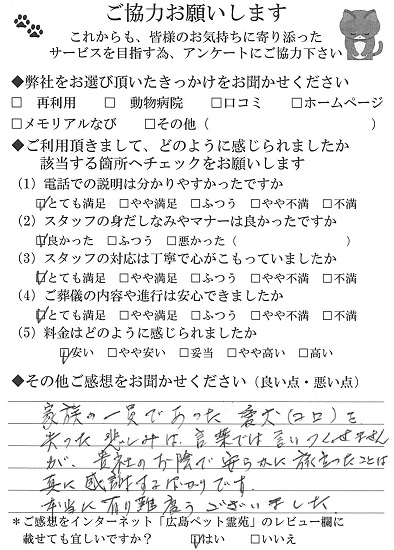 ご協力お願いします
これからも、皆様のお気持ちに寄り添った
サービスを目指す為、アンケートにご協力下さい
◆弊社をお選び頂いたきっかけをお聞かせください
□ 再利用 □ 動物病院 □口コミ □ホームページ
□メモリアルなび □その他（ ）
◆ご利用頂きまして、どのように感じられましたか
該当する箇所へチェックをお願いします
（1）電話での説明は分かりやすかったですか
☑とても満足 □やや満足 □ふつう □やや不満 □不満
（2）スタッフの身だしなみやマナーは良かったですか
☑良かった □ふつう □悪かった（ ）
（3）スタッフの対応は丁寧で心がこもっていましたか
☑とても満足 □やや満足 □ふつう □やや不満 □不満
（4）ご葬儀の内容や進行は安心できましたか
☑とても満足 □やや満足 □ふつう □やや不満 □不満
（5）料金はどのように感じられましたか
☑安い □やや安い □妥当 □やや高い □高い
◆その他ご感想をお聞かせください（良い点・悪い点）
家族の一員であった 愛犬（コロ）を
失った悲しみは 言葉では言いつくせません
が、貴社のお陰で安らかに旅立ったことは
真に感謝するばかりです.
本当に有り難度うございました
＊ご感想をインターネット「広島ペット霊苑」のレビュー欄に
載せても宜しいですか？ ☑はい □いいえ